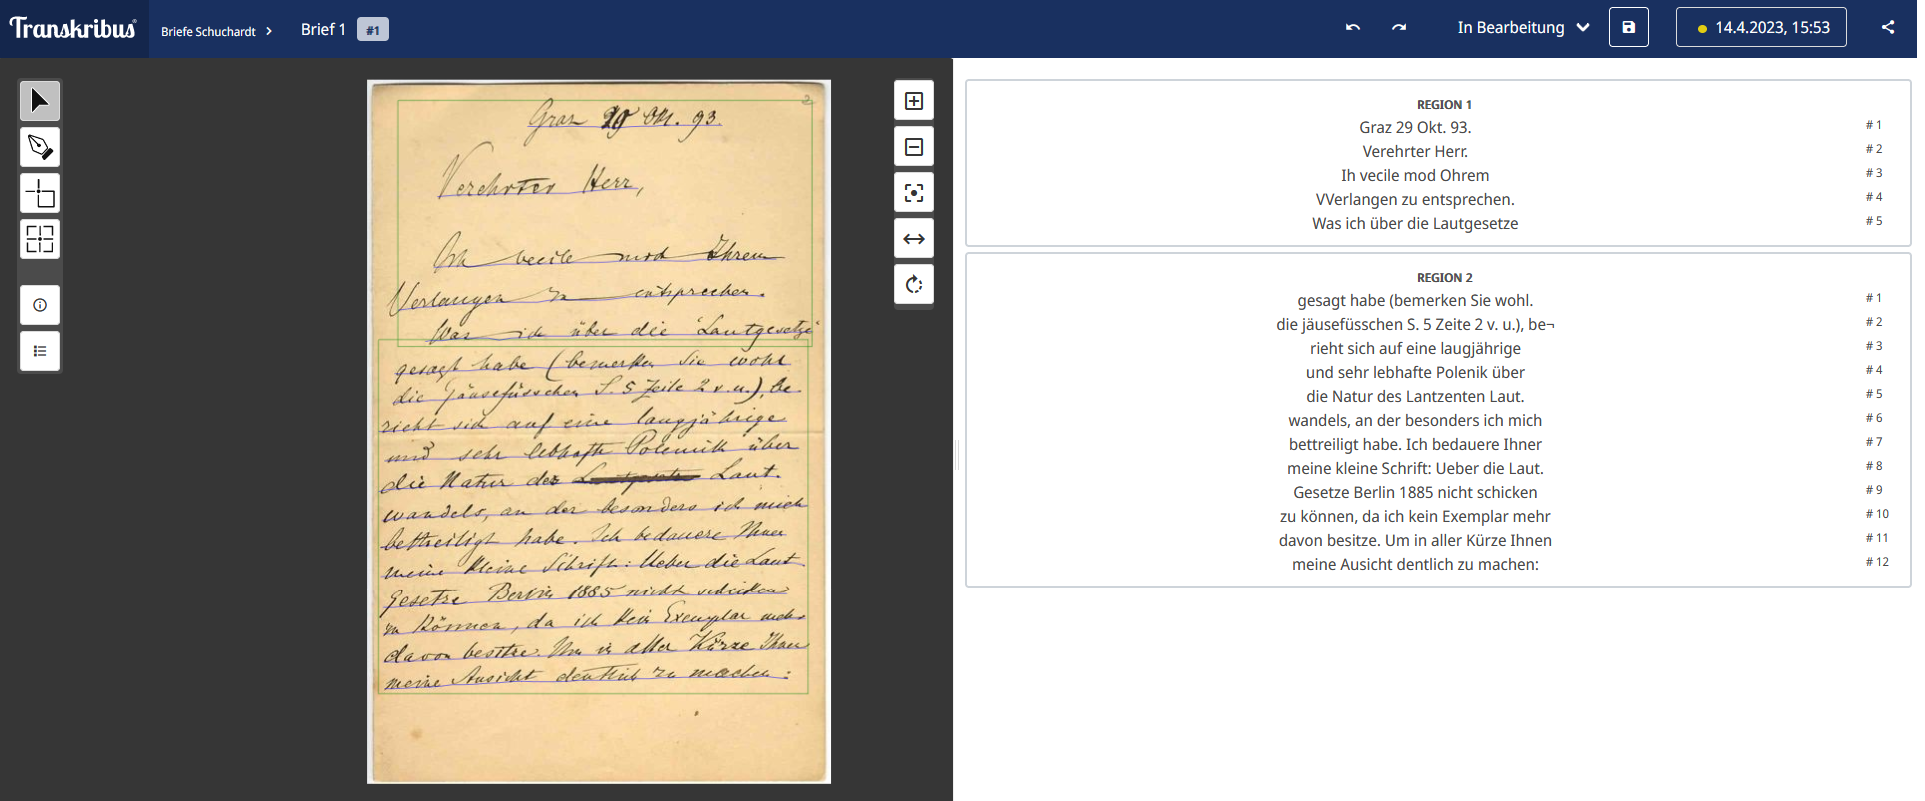 Transkribus
Briefe Schuchardt
Brief 1
#1
In Bearbeitung
14.4.2023, 15:53
2
Graz 29 Okt. 93.
Verehrter Herr,
Ich beeile mich Ihrem
Verlangen zu entsprechen.
Was ich über die 'Lautgesetze'
gesagt habe (bemerken Sie wohl
die Gänsefüsschen S. 5 Zeile 2 v. u.), be-
zieht sich auf eine langjährige
und sehr lebhafte Polemik über
die Natur des Laut-
wandels, an der besonders ich mich
betheiligt habe. Ich bedauere Ihnen
meine kleine Schrift: Ueber die Laut
gesetze Berlin 1885 nicht schicken
zu können, da ich kein Exemplar mehr
davon besitze. Um in aller Kürze Ihnen
meine Ansicht deutlich zu machen:
REGION 1
Graz 29 Okt. 93. #1
Verehrter Herr. #2
Ih vecile mod Ohrem #3
VVerlangen zu entsprechen. #4
Was ich über die Lautgesetze #5
REGION 2
gesagt habe (bemerken Sie wohl. #1
die jäusefüsschen S. 5 Zeite 2 v. u.), be¬ #2
rieht sich auf eine laugjährige #3
und sehr lebhafte Polenik über #4
die Natur des Lantzenten Laut. #5
wandels, an der besonders ich mich #6
bettreiligt habe. Ich bedauere Ihner #7
meine kleine Schrift: Ueber die Laut. #8
Gesetze Berlin 1885 nicht schicken #9
zu können, da ich kein Exemplar mehr #10
davon besitze. Um in aller Kürze Ihnen #11
meine Ausicht dentlich zu machen: #12